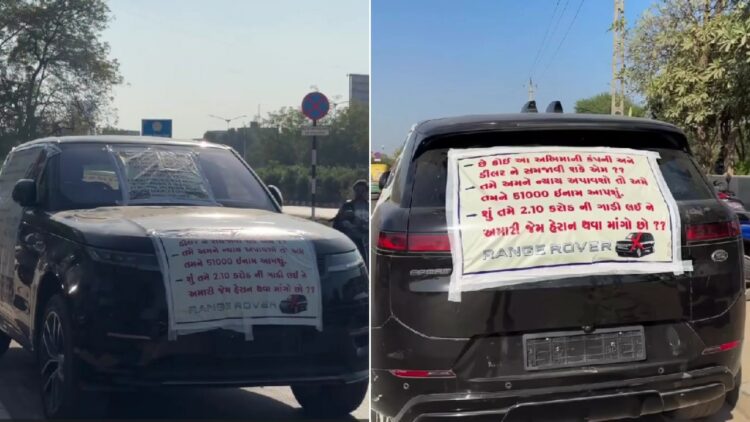 ડીલર ને સમજાવી શકે એમ ??
- તમે અમને ન્યાય અપાવશો તો અમે
તમને 51000 ઈનામ આપશું.
- શું તમે 2.10 કરોડ ની ગાડી લઈ ને
અમારી જેમ હેરાન થવા માંગો છો ??
RANGE ROVER
- છે કોઈ આ અભિમાની કંપની અને
ડીલર ને સમજાવી શકે એમ ??
- તમે અમને ન્યાય અપાવશો તો અમે
તમને 51000 ઈનામ આપશું.
- શું તમે 2.10 કરોડ ની ગાડી લઈ ને
અમારી જેમ હેરાન થવા માંગો છો ??
RANGE ROVER